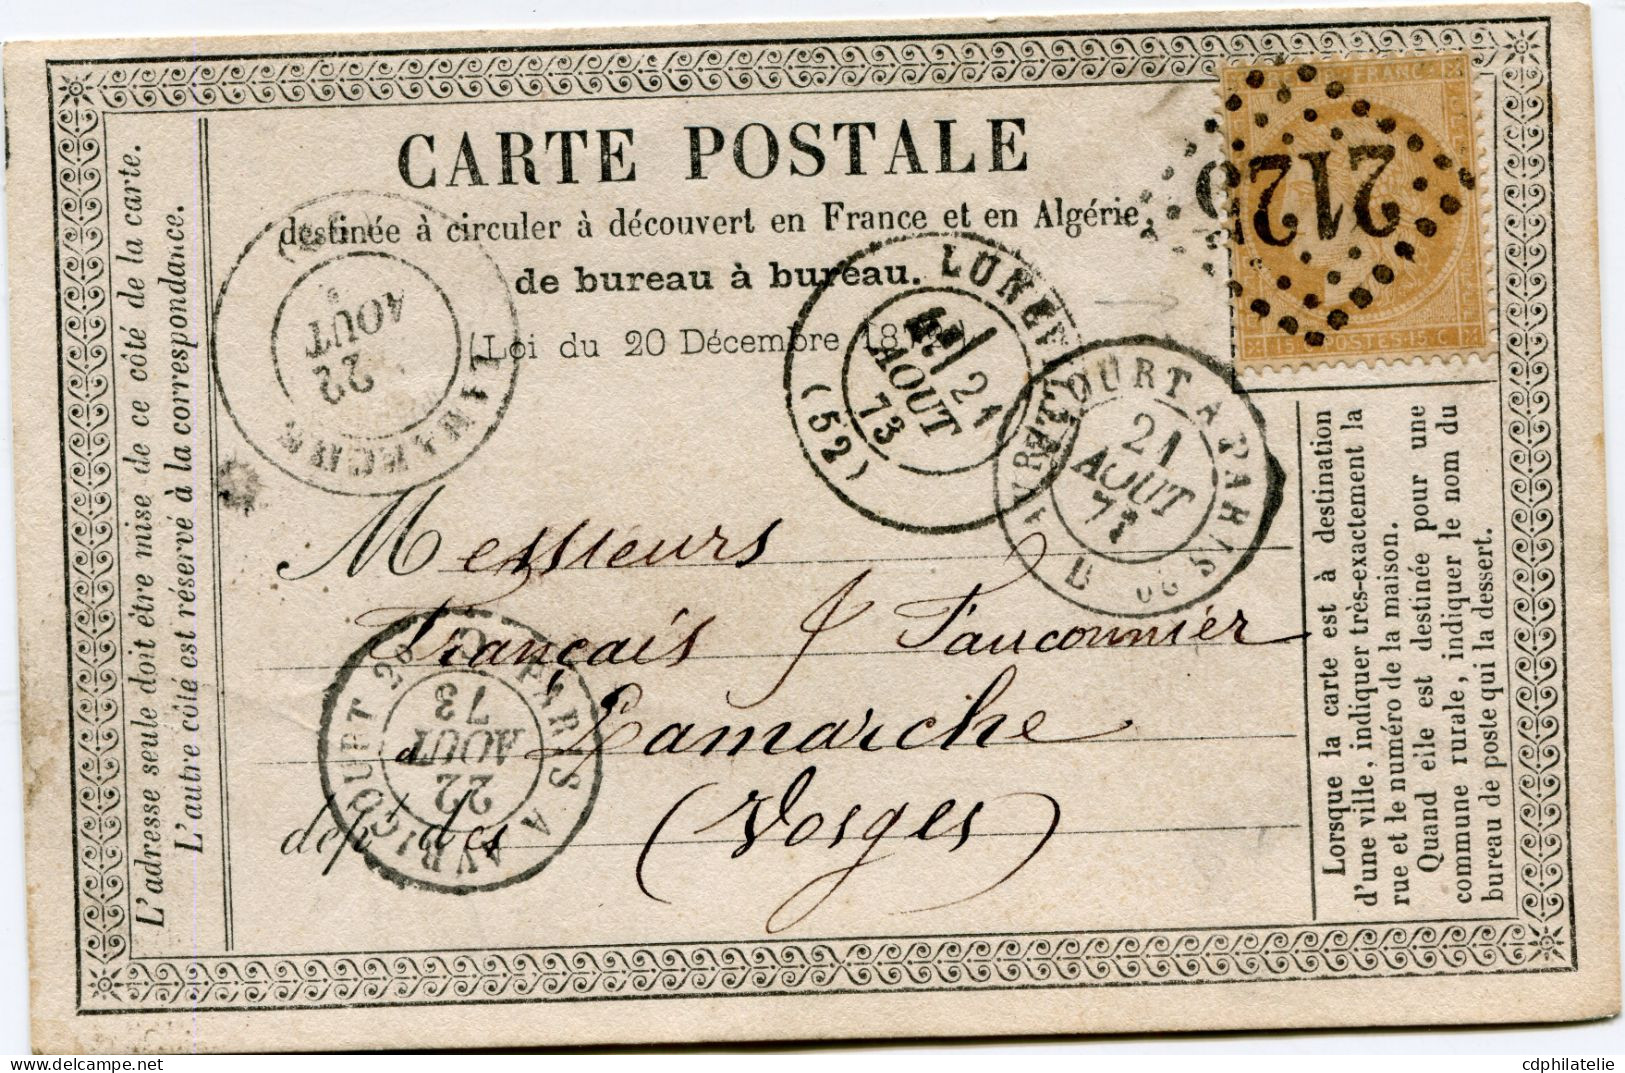 CARTE POSTALE
destinée à circuler à découvert en France et en Algérie,
de bureau à bureau.
(Loi du 20 Décembre
L'adresse seule doit être mise de ce côté de la carte.
L'autre côté est réservé à la correspondance.
LAMARCHE
22
AOUT
LUNEVILLE
21
AOUT
73
(52)
AVRICOURT A PARIS
21
AOUT
B
2125
FRANC
15 C POSTES 15 C
Messieurs
Français & Fauconnier
à Lamarche
dépt des (Vosges)
PARIS A AVRICOURT
22
AOUT
73
Lorsque la carte est à destination
d'une ville, indiquer très-exactement la
rue et le numéro de la maison.
Quand elle est destinée pour une
commune rurale, indiquer le nom du
bureau de poste qui la dessert.
cdphilatelie